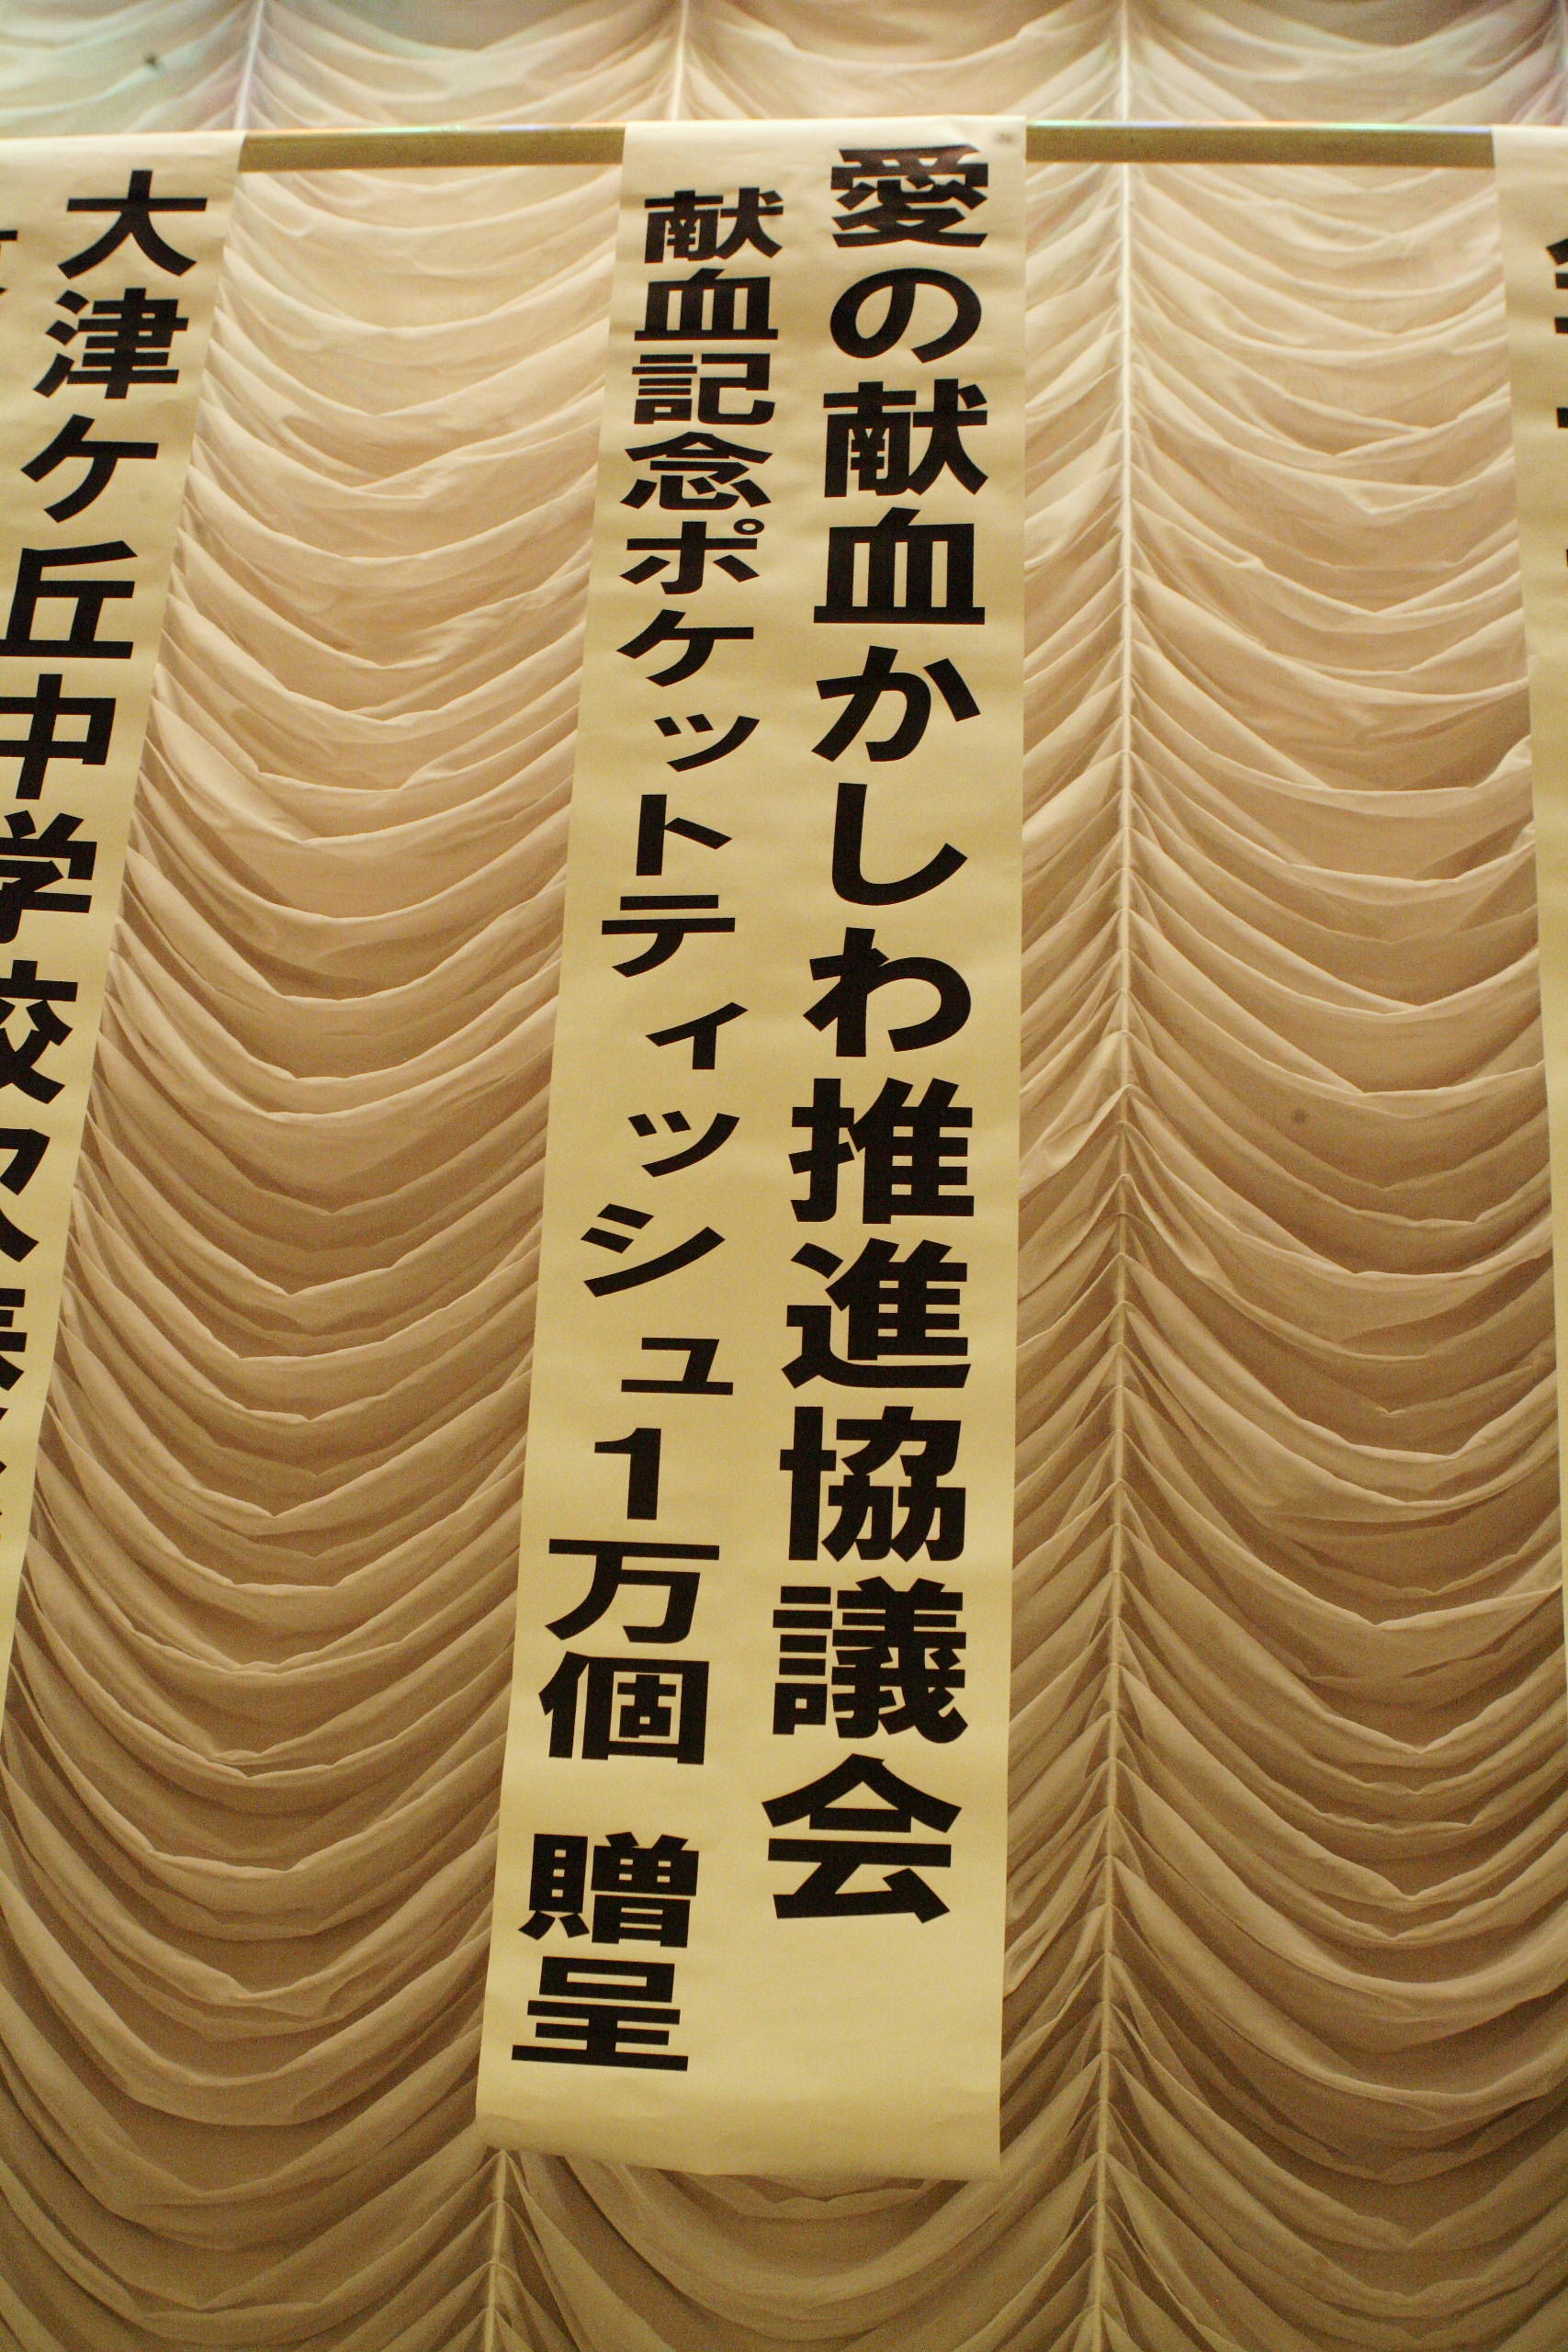 愛の献血かしわ推進協議会
献血記念ポケットティッシュ1万個 贈呈
大津ケ丘中学校吹奏